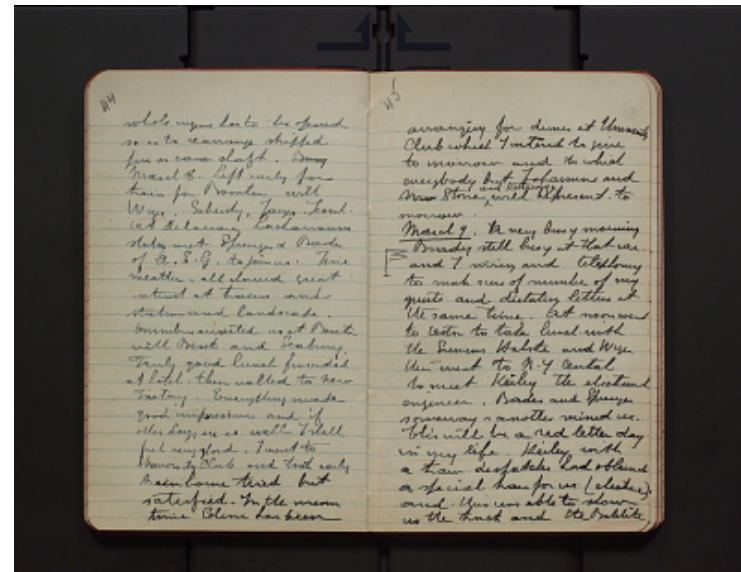 44
whole engine has to be opened
so as to rearrange stripped
on cam shaft. Busy
March 8. Left early for
train for Boonton with
. At Delaware Lackawanna
station met Sprenger &
of A.E.G. to join us. Fine
weather. all showed great
interest at tracks and
station and landscape.
Omnibus awaited us at
with and Seabury.
Truly good lunch provided
at hotel. then walked to new
Factory. Everything made
good impression and if
other days go as well I shall
feel very glad. I went to
University Club and took early
train home tired but
satisfied. In the mean
time Celine has been
45
arranging for dinner at University
Club which I intend to give
to morrow and to which
everybody but and
Mrs Stone, and will be present. to
morrow.
March 9. A very busy morning
still busy at
and I wiring and telephoning
to make sure of number of my
guests and dictating letters at
the same time. At noon went
to to take lunch with
the Siemens Halske and
then went to N.Y Central
to meet the electrical
engineer. and Sprenger
someway or another missed us.
This will be a red letter day
in my life. with
a few despatches had obtained
a special train for us (electric)
and thus was able to show
us the track and the